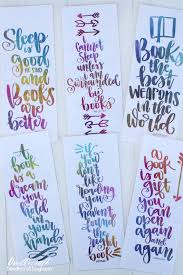 Sleep is
good
he said
and
Books
are
better
I
cannot
Sleep
unless I am
Surrounded
by
books
Books
are
the
best
weapons
in the
world
a
book
is a
dream
you
hold
in your
hands
if
you
don't like
reading
you
haven't
found
the
right
book
a
book is
a gift
you
can
open
again
and
again